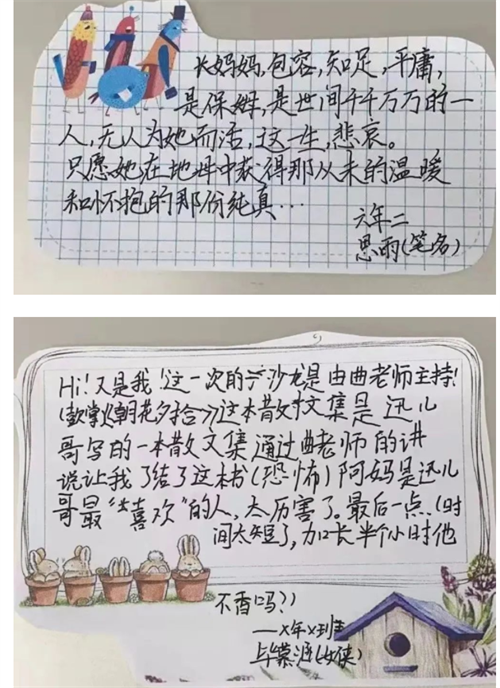 长妈妈,包容,知足,平庸,
是保姆,是世间千千万万的一
人,无人为她而活,这一生,悲哀。
只愿她在地中获得那从未的温暖
和怀抱的那份纯真…
六年二
思雨(笔名)
Hi!又是我!这一次的沙龙是由曲老师主持!
朝花夕拾》这本散文集是迅儿
哥写的一本散文集通过曲老师的讲
说让我了结了这本书(恐怖)阿妈是迅儿
哥最“喜欢”的人,太厉害了。最后一点.(时
间太短了,加长半个小时他
不香吗?)
——X年X班
(女侠)